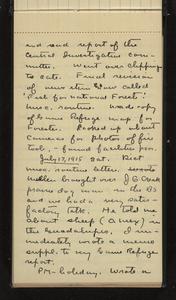 and send report of the
Central Investigative com-
mittee. Went over clippings
to date. Final revision
of news item called
"Peak for national Forest";
misc. routine. Made copy
of Game Refuge map for
Forester. Looked up about
cameras for photos of fire
tool, - found facilities poor.
July 17, 1915 Sat. Dict
misc. routine letter,
brought over J B
prairie dog man in the BS
and we had a very satis-
factory talk. He told me
about sheep (O. ) in
the Guadalupes, I im-
mediately wrote a memo
suppl. to my Game Refuge
report.
PM - holiday. Wrote a